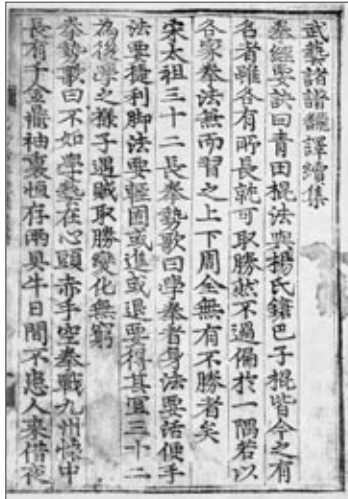 武藝諸譜飜譯續集
拳經要訣曰靑田棍法與楊氏鎗巴子棍皆今之有
名者雖各有所長就可取勝然不過偏於一隅若以
各家拳法兼而習之上下周全無有不勝者矣
宋太祖三十二長拳勢歌曰學拳者身法要活便手
法要捷利脚法要輕固或進或退要得其宜三十二
為後學之樣子遇賊取勝變化無窮
拳勢歌曰不如學藝在心頭赤手空拳戰九州懷中
長有千金鼎袖裏恒存兩具牛日間不患人裏借夜